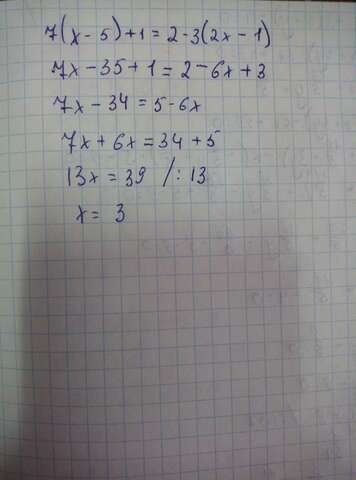 7(x-5)+1=2-3(2x-1)
7x-35+1=2-6x+3
7x-34=5-6x
7x+6x=34+5
13x=39 /:13
x=3